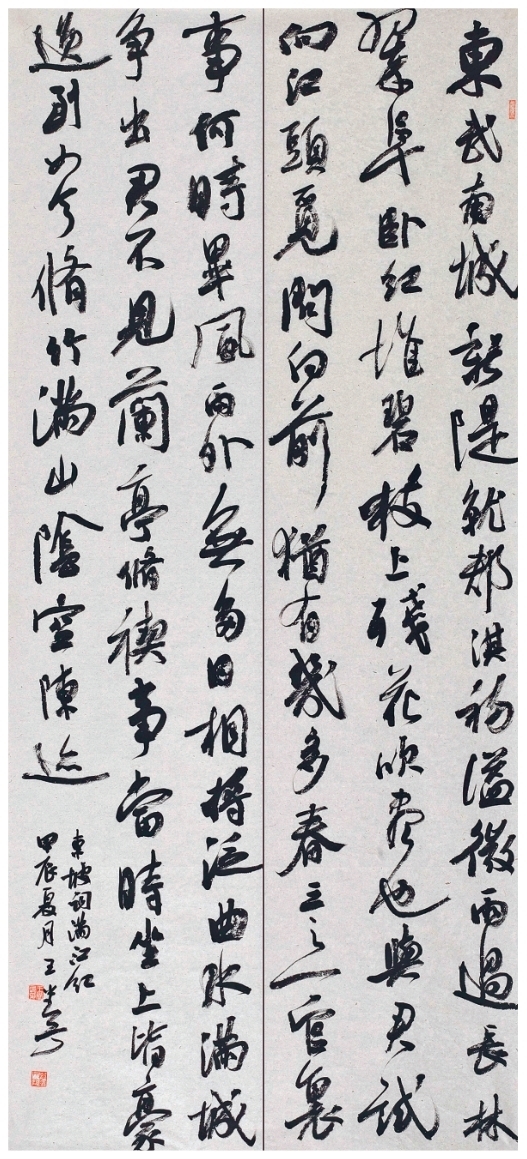 東武南城新隄就淇初溢微雨過長林
翠阜卧紅堆碧枝上殘花吹盡也與君試
向江頭覓問向前猶有幾多春三之一官裏
事何時畢風雨外無多日相將泛曲水滿城
争出君不見蘭亭脩禊事當時坐上皆豪
逸到如今脩竹滿山陰空陳迹
東坡詞滿江紅
甲辰夏月王